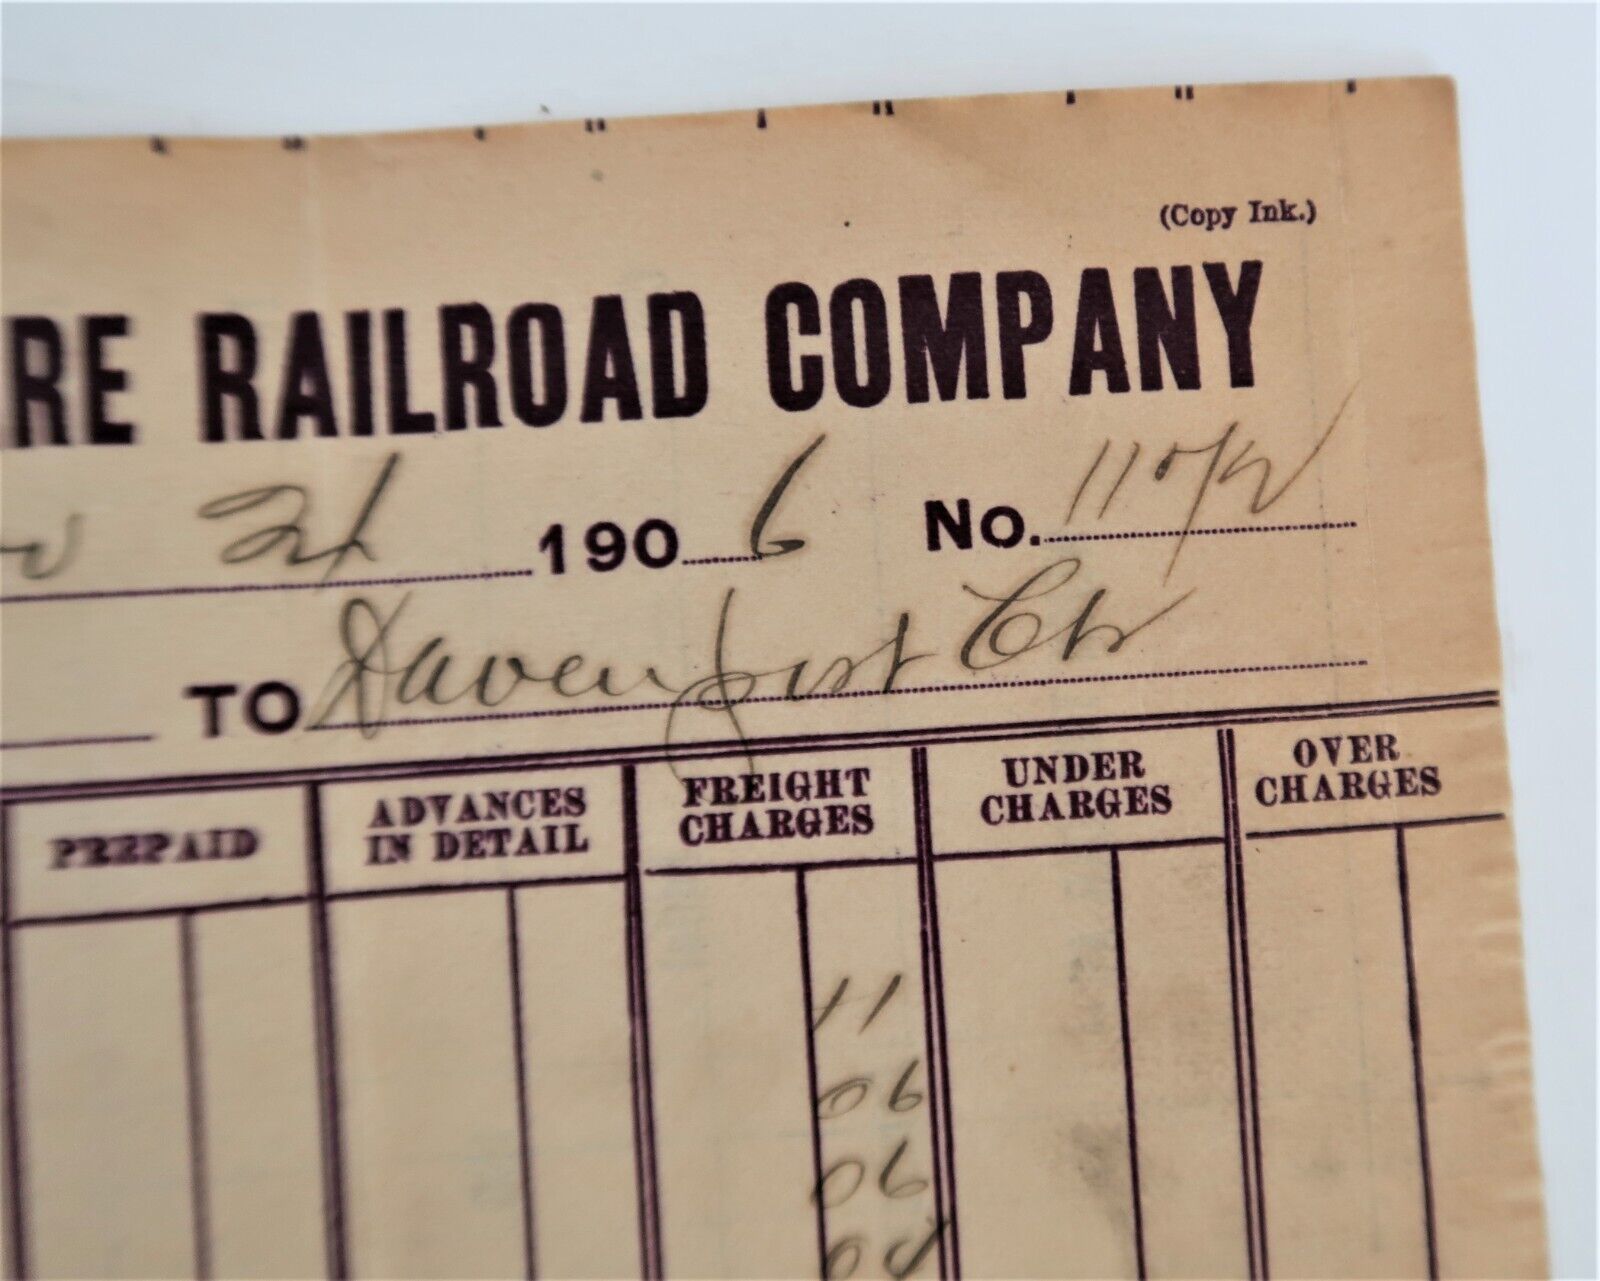 (Copy Ink.)
RE RAILROAD COMPANY
24 1906 No.
TO Davenport Ctr
PREPAID ADVANCES IN DETAIL FREIGHT CHARGES UNDER CHARGES OVER CHARGES
11
06
06
04